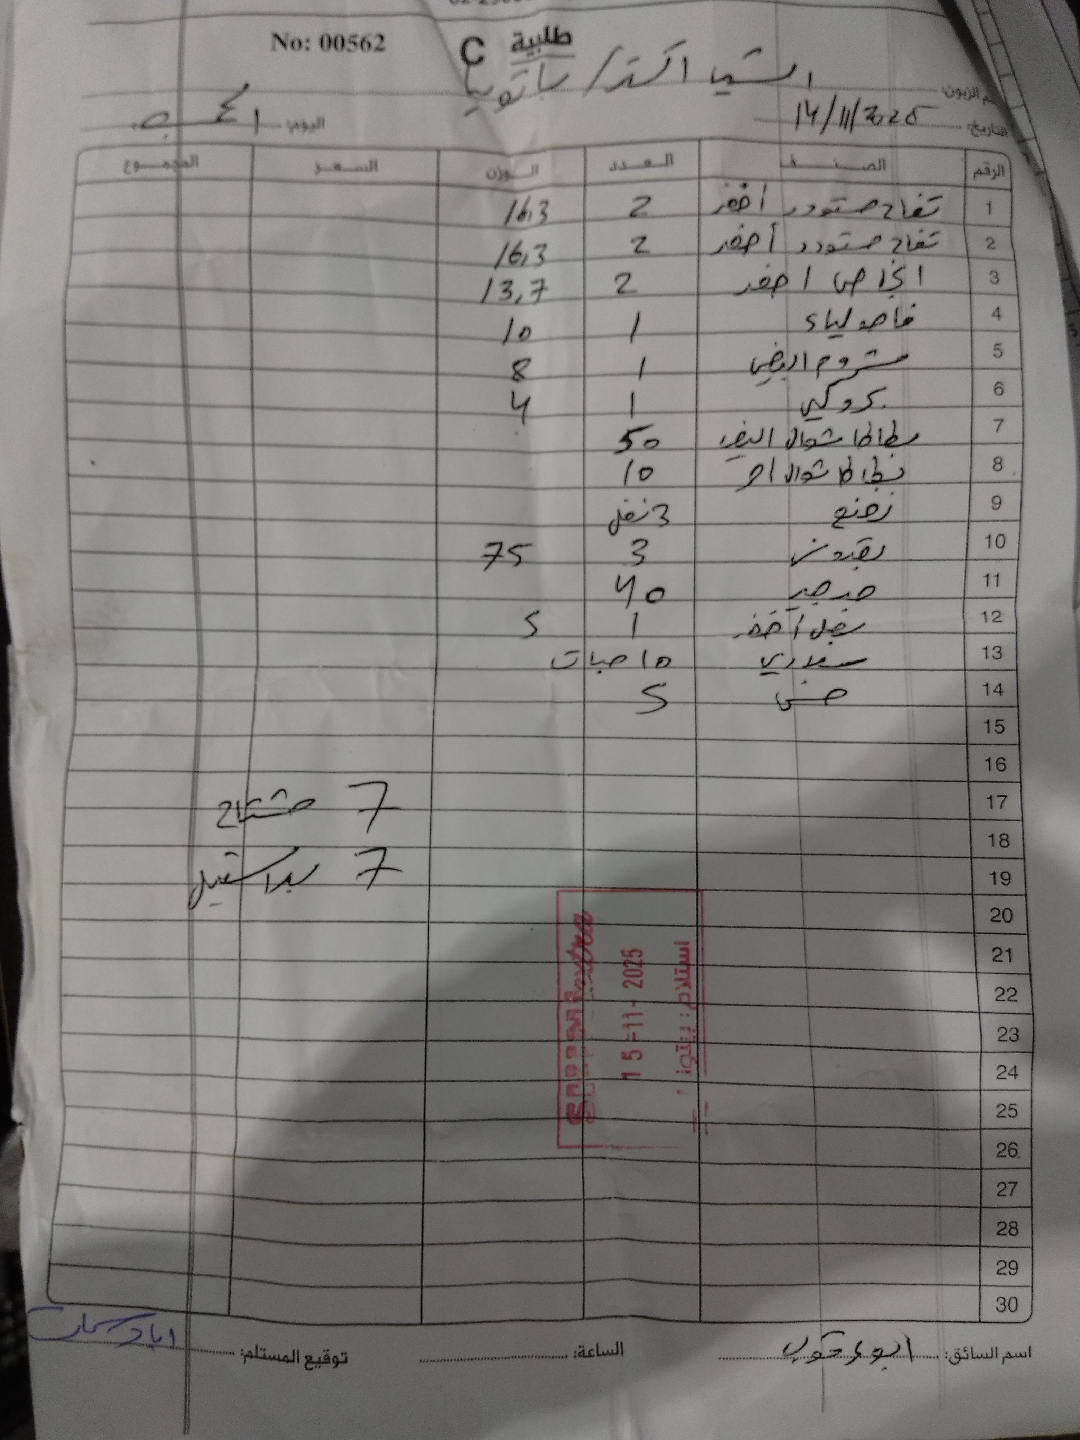 No: 00562
طلبية C
اكسترا / بيتونيا
التاريخ: 14/11/2025
اليوم:
الرقم الصنف العدد الوزن السعر المجموع
1 تفاح مستورد أخضر 2 16,3
2 تفاح مستورد أصفر 2 16,3
3 اجاص اخضر 2 13,7
4 فاصولياء 1 10
5 مشروم ابيض 1 8
6 بروكلي 1 4
7 بطاطا شوال ابيض 50
8 بطاطا شوال احمر 10
9 نعنع 3
10 بقدونس 3 75
11 جرجير 40
12 بصل أخضر 1 5
13 سلاري 10 حبات
14 خس 5
15
16
17 7 مشتاح
18
19 7 بلاستيك
20
21
22
23
24
25
26
27
28
29
30
15-11-2025
اسم السائق: ابو
الساعة:
توقيع المستلم: